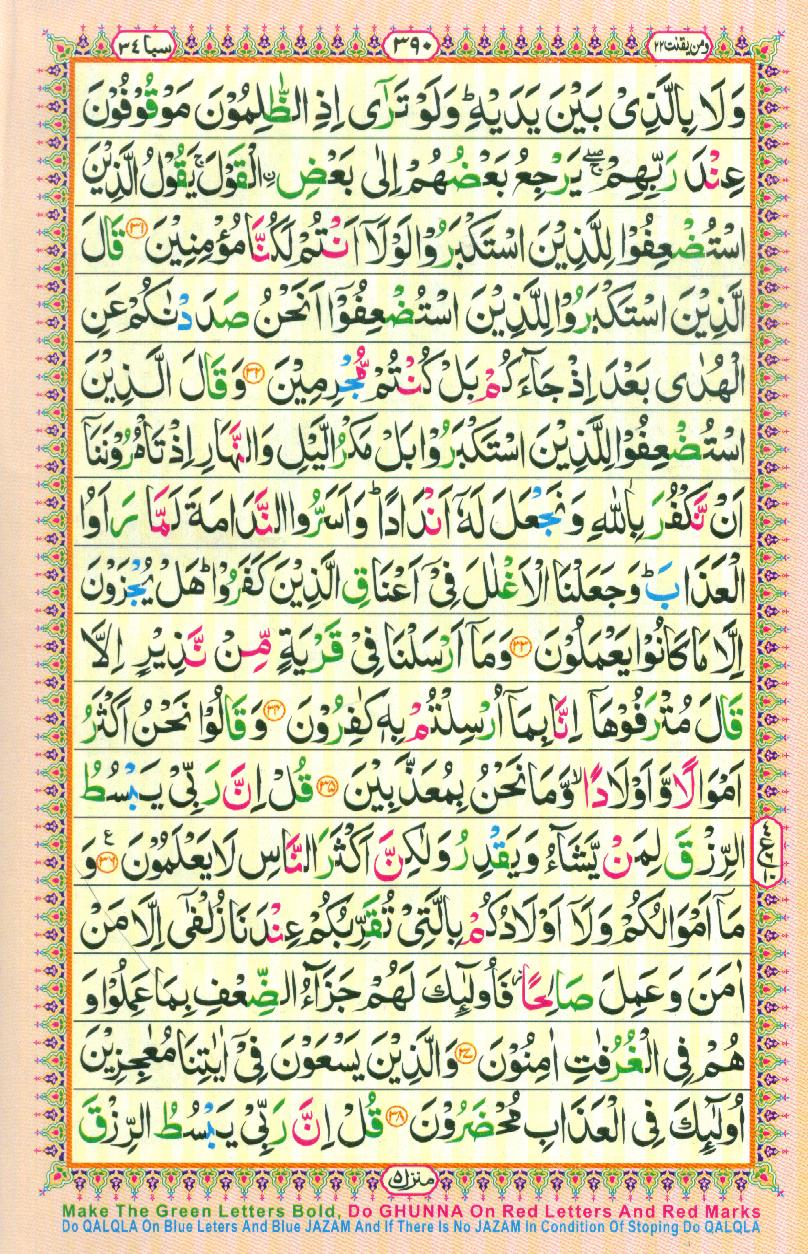 سبا ٣٤ ٣٩٠ ومن يقنت ٢٢
وَلَا بِالَّذِىْ بَيْنَ يَدَيْهِ ؕ وَلَوْ تَرٰٓى اِذِ الظّٰلِمُوْنَ مَوْقُوْفُوْنَ
عِنْدَ رَبِّهِمْ ۖۚ يَرْجِعُ بَعْضُهُمْ اِلٰى بَعْضِ ۨالْقَوْلَ ۚ يَقُوْلُ الَّذِيْنَ
اسْتُضْعِفُوْا لِلَّذِيْنَ اسْتَكْبَرُوْا لَوْلَاۤ اَنْتُمْ لَكُنَّا مُؤْمِنِيْنَ ﴿٣١﴾ قَالَ
الَّذِيْنَ اسْتَكْبَرُوْا لِلَّذِيْنَ اسْتُضْعِفُوْۤا اَنَحْنُ صَدَدْنٰكُمْ عَنِ
الْهُدٰى بَعْدَ اِذْ جَآءَكُمْ بَلْ كُنْتُمْ مُّجْرِمِيْنَ ﴿٣٢﴾ وَقَالَ الَّذِيْنَ
اسْتُضْعِفُوْا لِلَّذِيْنَ اسْتَكْبَرُوْا بَلْ مَكْرُ الَّيْلِ وَالنَّهَارِ اِذْ تَاْمُرُوْنَنَاۤ
اَنْ نَّكْفُرَ بِاللّٰهِ وَنَجْعَلَ لَهٗۤ اَنْدَادًا ؕ وَاَسَرُّوا النَّدَامَةَ لَمَّا رَاَوُا
الْعَذَابَ ؕ وَجَعَلْنَا الْاَغْلٰلَ فِىْۤ اَعْنَاقِ الَّذِيْنَ كَفَرُوْا ؕ هَلْ يُجْزَوْنَ
اِلَّا مَا كَانُوْا يَعْمَلُوْنَ ﴿٣٣﴾ وَمَاۤ اَرْسَلْنَا فِىْ قَرْيَةٍ مِّنْ نَّذِيْرٍ اِلَّا
قَالَ مُتْرَفُوْهَاۤ اِنَّا بِمَاۤ اُرْسِلْتُمْ بِهٖ كٰفِرُوْنَ ﴿٣٤﴾ وَقَالُوْا نَحْنُ اَكْثَرُ
اَمْوَالًا وَّاَوْلَادًا ۙ وَّمَا نَحْنُ بِمُعَذَّبِيْنَ ﴿٣٥﴾ قُلْ اِنَّ رَبِّىْ يَبْسُطُ
الرِّزْقَ لِمَنْ يَّشَآءُ وَيَقْدِرُ وَلٰكِنَّ اَكْثَرَ النَّاسِ لَا يَعْلَمُوْنَ ﴿٣٦﴾ ع وَ
مَاۤ اَمْوَالُكُمْ وَلَاۤ اَوْلَادُكُمْ بِالَّتِىْ تُقَرِّبُكُمْ عِنْدَنَا زُلْفٰٓى اِلَّا مَنْ
اٰمَنَ وَعَمِلَ صَالِحًا ۫ فَاُولٰٓئِكَ لَهُمْ جَزَآءُ الضِّعْفِ بِمَا عَمِلُوْا وَ
هُمْ فِى الْغُرُفٰتِ اٰمِنُوْنَ ﴿٣٧﴾ وَالَّذِيْنَ يَسْعَوْنَ فِىْۤ اٰيٰتِنَا مُعٰجِزِيْنَ
اُولٰٓئِكَ فِى الْعَذَابِ مُحْضَرُوْنَ ﴿٣٨﴾ قُلْ اِنَّ رَبِّىْ يَبْسُطُ الرِّزْقَ
منزل ٥
Make The Green Letters Bold, Do GHUNNA On Red Letters And Red Marks
Do QALQLA On Blue Leters And Blue JAZAM And If There Is No JAZAM In Condition Of Stoping Do QALQLA